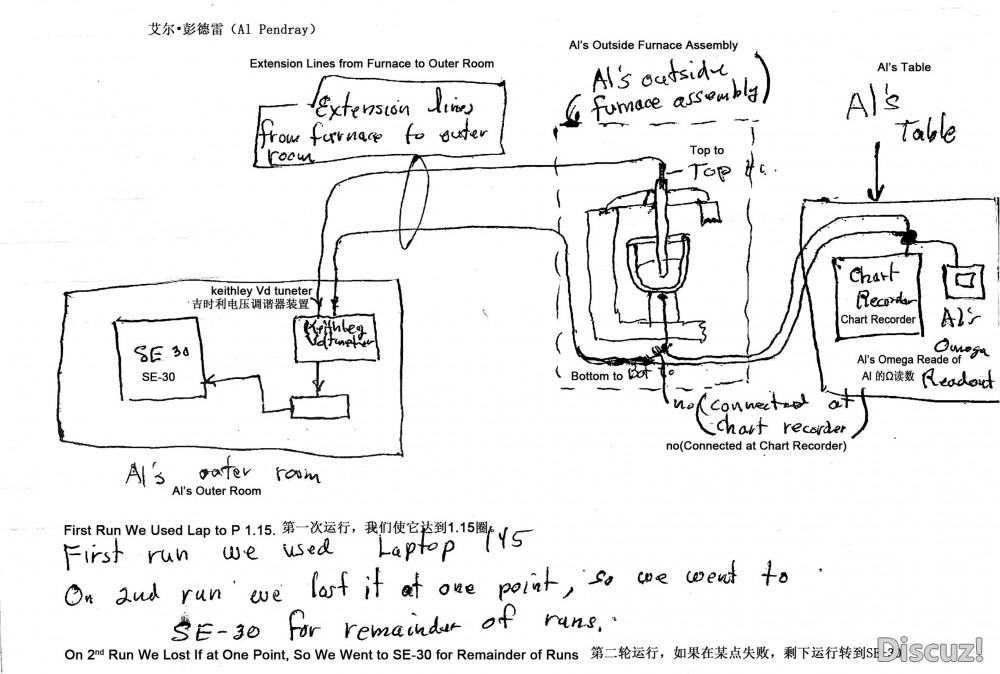 艾尔•彭德雷（Al Pendray）
Extension Lines from Furnace to Outer Room
Extension lines
from furnace to outer
room
Al's Outside Furnace Assembly
Al's outside
furnace assembly
Al's Table
Al's
Table
Top to
Top
keithley Vd tuneter
吉时利电压调谐器装置
Keithley
Voltmeter
SE 30
SE-30
Chart
Recorder
Chart Recorder
Al's
Omega
Readout
Al's Omega Reade of
Al 的Ω读数
Bottom to
Bot to
no (connected at
chart recorder)
no(Connected at Chart Recorder)
Al's outer room
Al's Outer Room
First Run We Used Lap to P 1.15. 第一次运行，我们使它达到1.15圈。
First run we used Laptop 145
On 2nd run we lost it at one point, so we went to
SE-30 for remainder of runs.
On 2nd Run We Lost If at One Point, So We Went to SE-30 for Remainder of Runs 第二轮运行，如果在某点失败，剩下运行转到SE-30
Discuz!